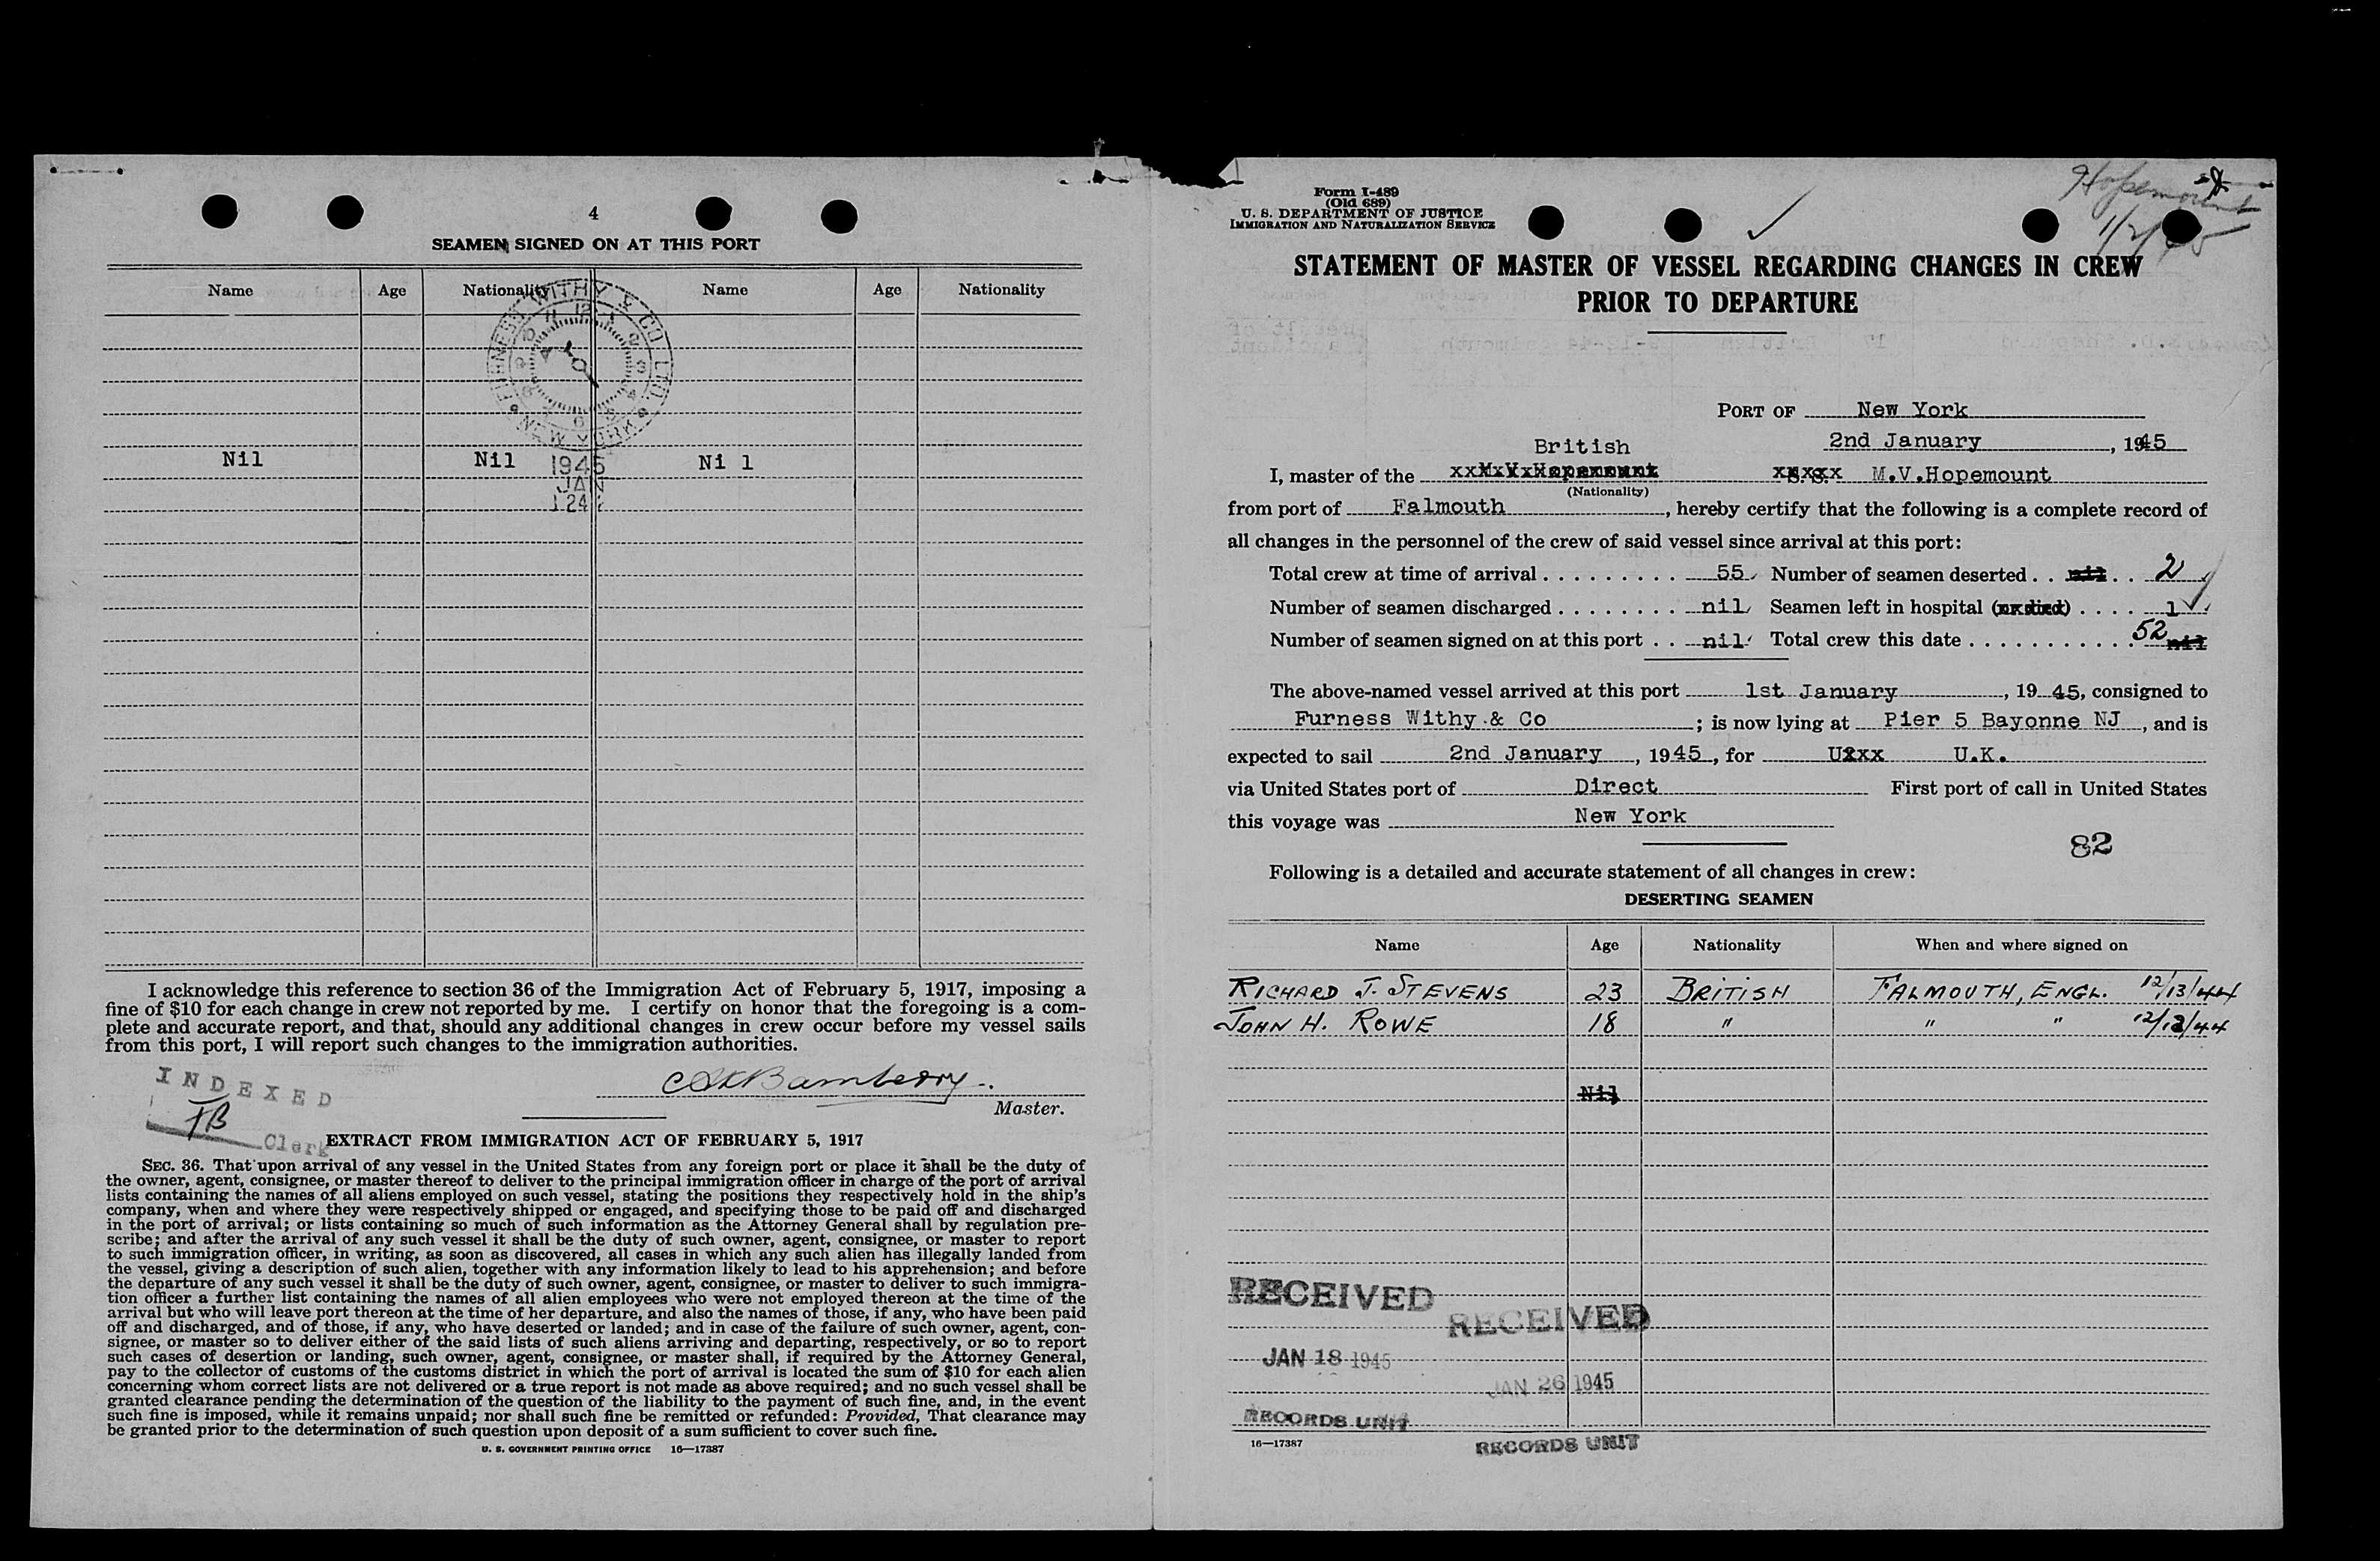 4
SEAMEN SIGNED ON AT THIS PORT
Name Age Nationality Name Age Nationality
FURNESS WITHY & CO LTD.
NEW YORK
Nil Nil Ni l
1945
JAN
I acknowledge this reference to section 36 of the Immigration Act of February 5, 1917, imposing a
fine of $10 for each change in crew not reported by me. I certify on honor that the foregoing is a com-
plete and accurate report, and that, should any additional changes in crew occur before my vessel sails
from this port, I will report such changes to the immigration authorities.
INDEXED
Bamberry
Master.
Clerk
EXTRACT FROM IMMIGRATION ACT OF FEBRUARY 5, 1917
SEC. 36. That upon arrival of any vessel in the United States from any foreign port or place it shall be the duty of
the owner, agent, consignee, or master thereof to deliver to the principal immigration officer in charge of the port of arrival
lists containing the names of all aliens employed on such vessel, stating the positions they respectively hold in the ship's
company, when and where they were respectively shipped or engaged, and specifying those to be paid off and discharged
in the port of arrival; or lists containing so much of such information as the Attorney General shall by regulation pre-
scribe; and after the arrival of any such vessel it shall be the duty of such owner, agent, consignee, or master to report
to such immigration officer, in writing, as soon as discovered, all cases in which any such alien has illegally landed from
the vessel, giving a description of such alien, together with any information likely to lead to his apprehension; and before
the departure of any such vessel it shall be the duty of such owner, agent, consignee, or master to deliver to such immigra-
tion officer a further list containing the names of all alien employees who were not employed thereon at the time of the
arrival but who will leave port thereon at the time of her departure, and also the names of those, if any, who have been paid
off and discharged, and of those, if any, who have deserted or landed; and in case of the failure of such owner, agent, con-
signee, or master so to deliver either of the said lists of such aliens arriving and departing, respectively, or so to report
such cases of desertion or landing, such owner, agent, consignee, or master shall, if required by the Attorney General,
pay to the collector of customs of the customs district in which the port of arrival is located the sum of $10 for each alien
concerning whom correct lists are not delivered or a true report is not made as above required; and no such vessel shall be
granted clearance pending the determination of the question of the liability to the payment of such fine, and, in the event
such fine is imposed, while it remains unpaid; nor shall such fine be remitted or refunded: Provided, That clearance may
be granted prior to the determination of such question upon deposit of a sum sufficient to cover such fine.
U. S. GOVERNMENT PRINTING OFFICE 16—17387
Form I-489
(Old 689)
U. S. DEPARTMENT OF JUSTICE
IMMIGRATION AND NATURALIZATION SERVICE
Hopemount
1/2/45
STATEMENT OF MASTER OF VESSEL REGARDING CHANGES IN CREW
PRIOR TO DEPARTURE
PORT OF New York
2nd January, 1945
British
I, master of the M.V.Hopemount
(Nationality)
from port of Falmouth, hereby certify that the following is a complete record of
all changes in the personnel of the crew of said vessel since arrival at this port:
Total crew at time of arrival . . . . . . . . . 55 Number of seamen deserted . . nil . . 2
Number of seamen discharged . . . . . . . . nil Seamen left in hospital (or died) . . . . 1
Number of seamen signed on at this port . . nil Total crew this date . . . . . . . . . . . 52 nil
The above-named vessel arrived at this port 1st January, 1945, consigned to
Furness Withy & Co; is now lying at Pier 5 Bayonne NJ, and is
expected to sail 2nd January, 1945, for U.K.
via United States port of Direct First port of call in United States
this voyage was New York
82
Following is a detailed and accurate statement of all changes in crew:
DESERTING SEAMEN
Name Age Nationality When and where signed on
RICHARD J. STEVENS 23 BRITISH FALMOUTH, ENGL. 12/13/44
JOHN H. ROWE 18 " " " 12/12/44
Nil
RECEIVED
RECEIVED
JAN 18 1945
JAN 26 1945
RECORDS UNIT
16—17387
RECORDS UNIT